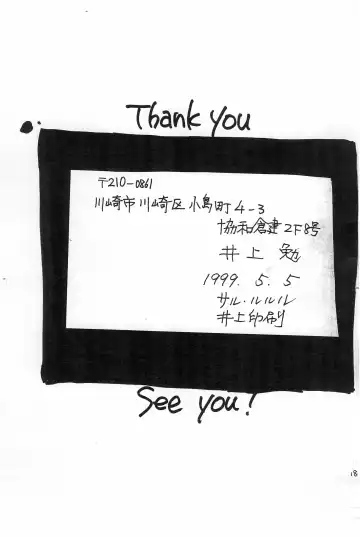 Thank you
〒210-0861
川崎市川崎区小島町4-3
協和倉建2F8号
井上 勉
1999. 5. 5
サル・ルルル
井上印刷
See you!
18